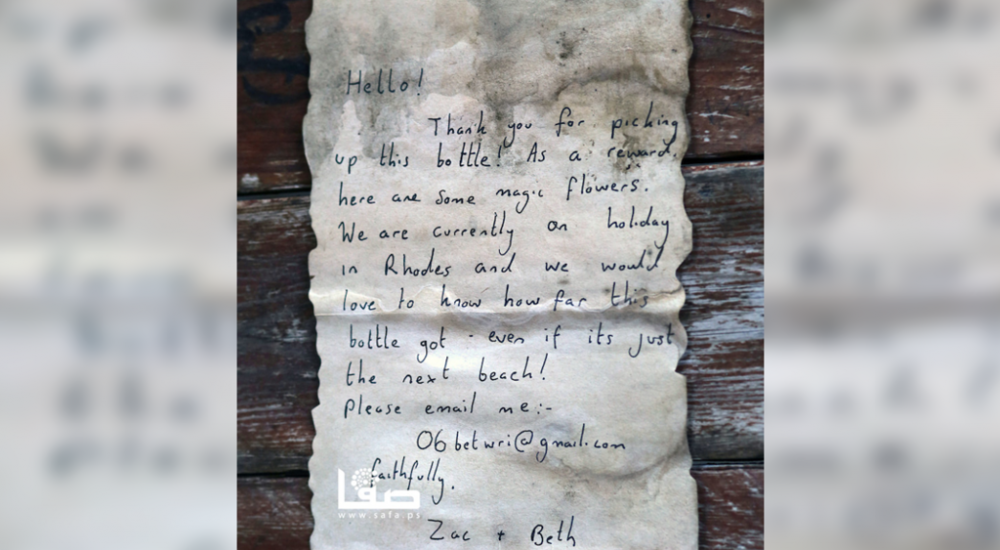 Hello!
Thank you for picking
up this bottle! As a reward,
here are some magic flowers.
We are currently on holiday
in Rhodes and we would
love to know how far this
bottle got - even if its just
the next beach!
Please email me:-
06betwri@gmail.com
faithfully.
صفا
www.safa.ps
Zac + Beth